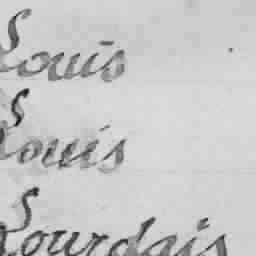 Louis
Louis
Lourdais